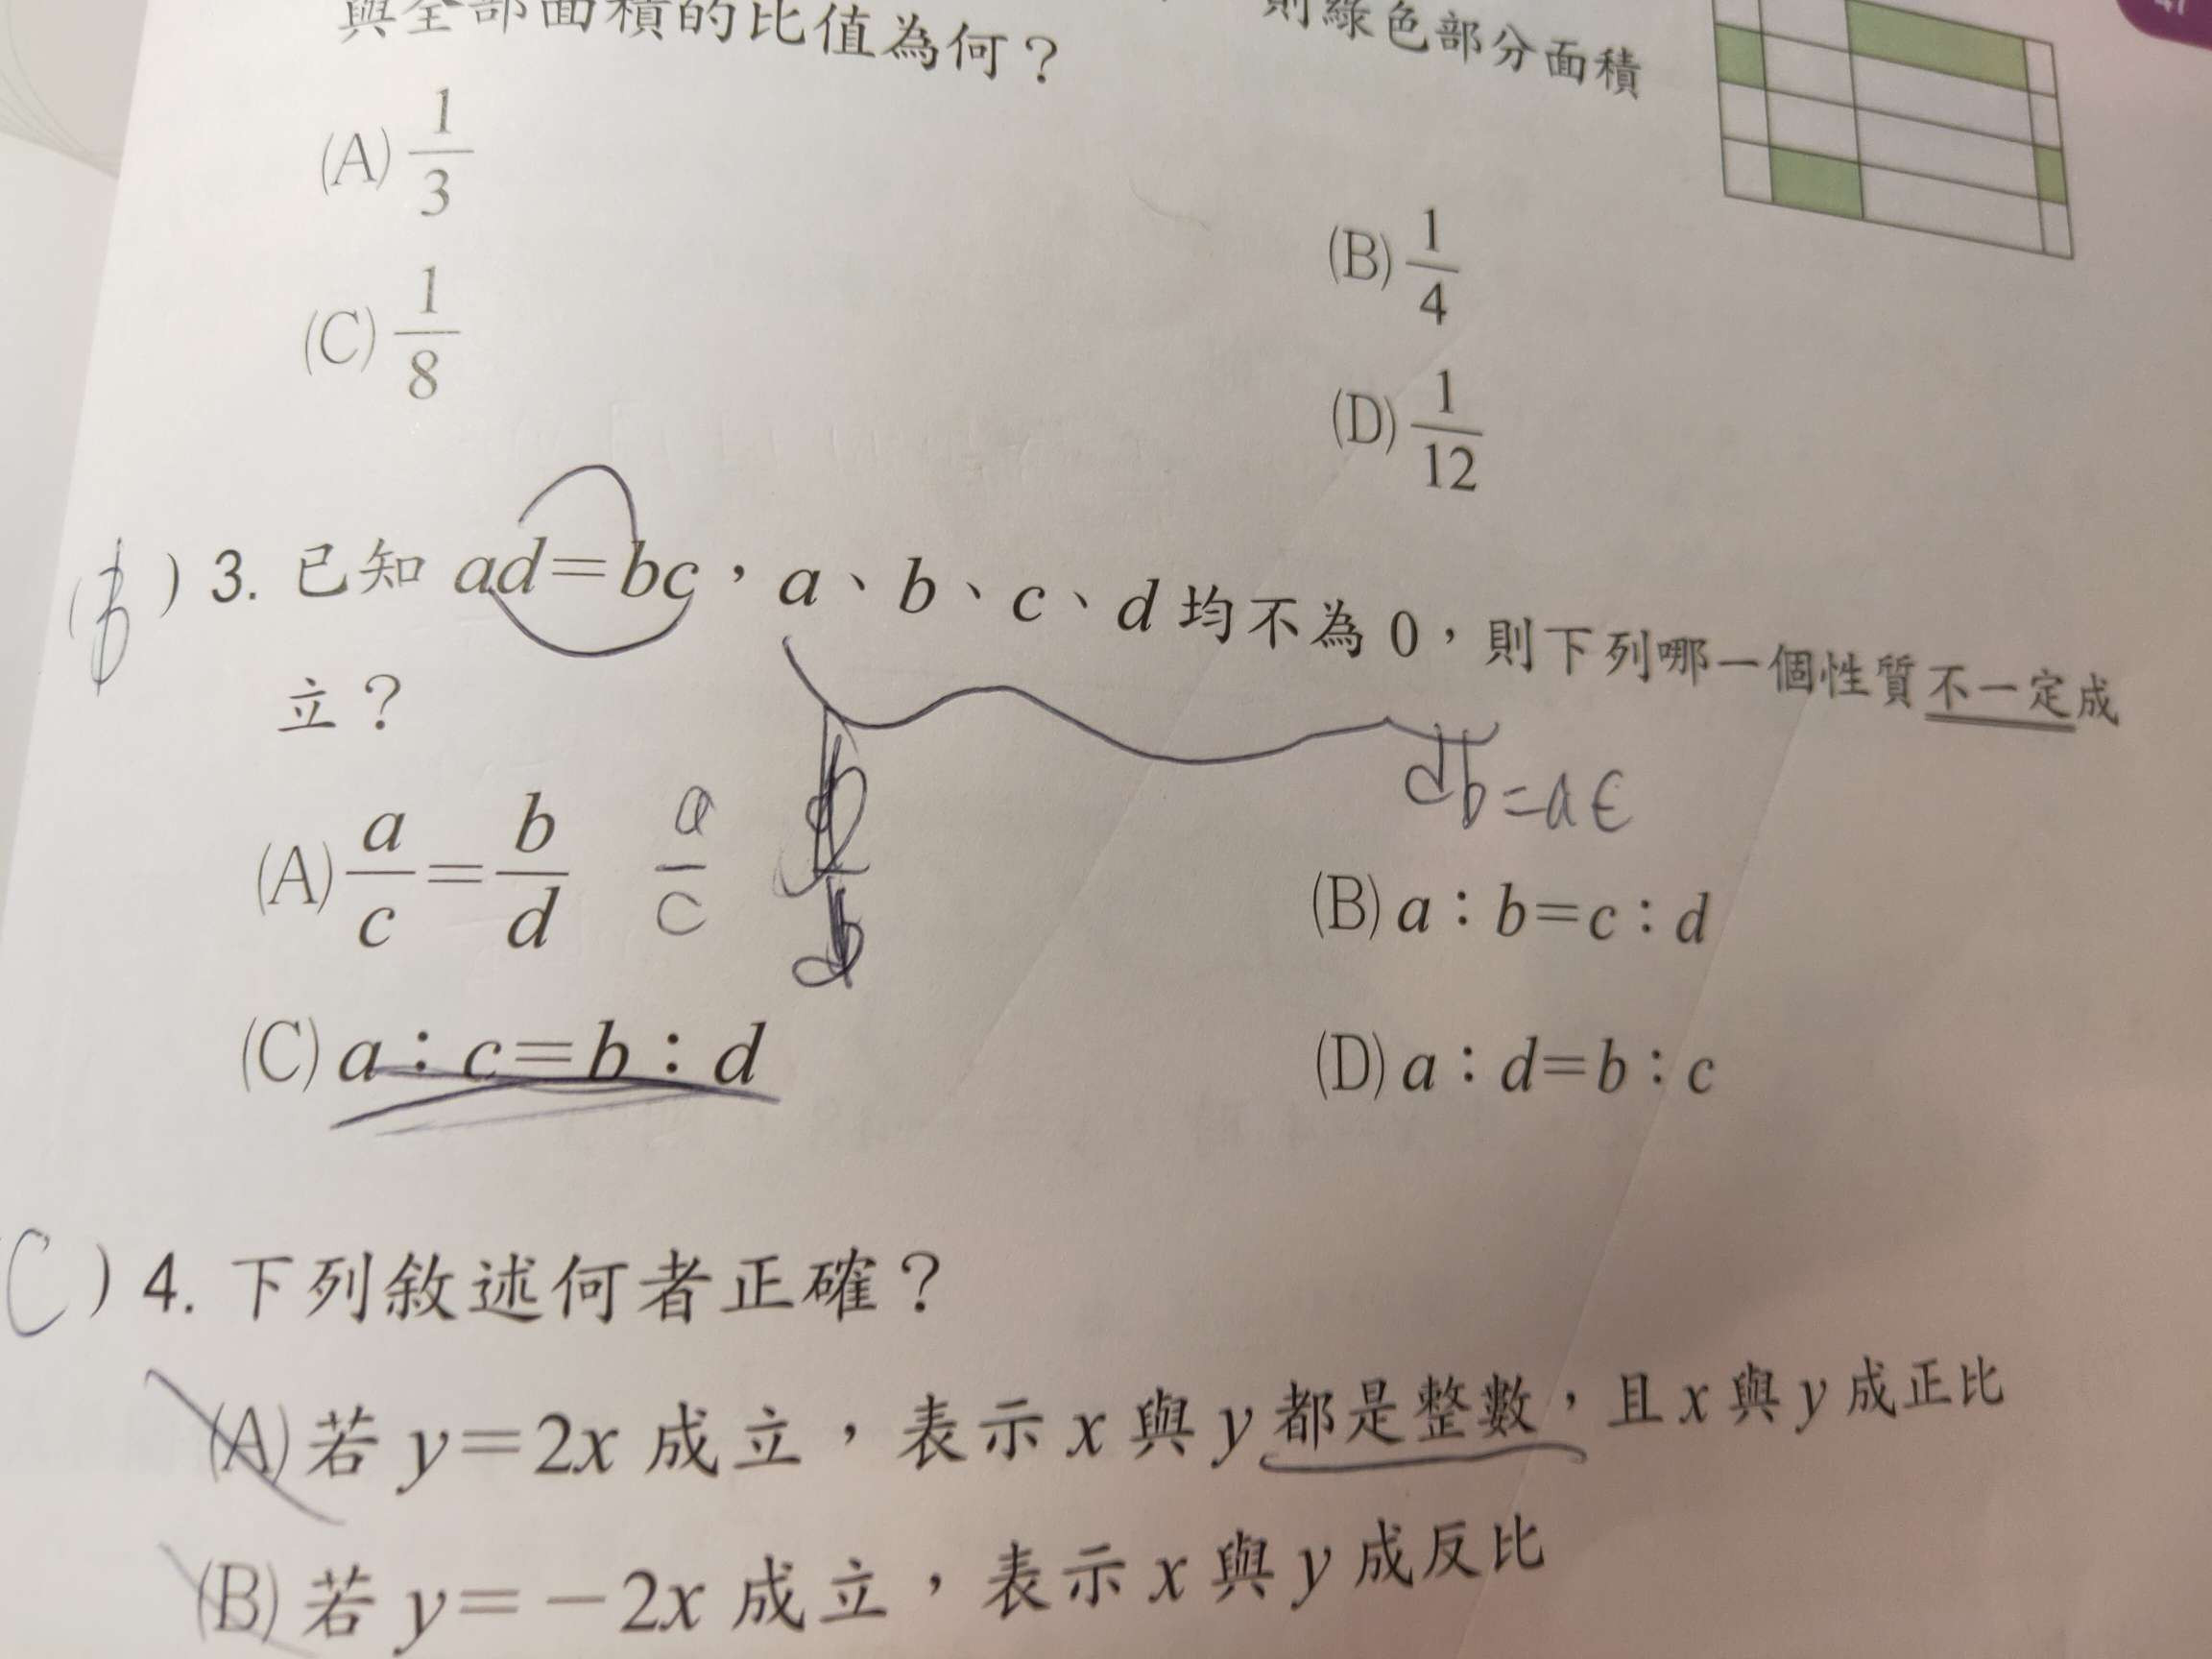 與全部面積的比值為何？
則綠色部分面積
(A) 1/3
(B) 1/4
(C) 1/8
(D) 1/12
) 3. 已知 ad=bc，a、b、c、d 均不為 0，則下列哪一個性質不一定成
立？
db=a
(A) a/c = b/d
a/c
(B) a：b=c：d
(C) a：c=b：d
(D) a：d=b：c
C ) 4. 下列敘述何者正確？
(A) 若 y=2x 成立，表示 x 與 y 都是整數，且 x 與 y 成正比
(B) 若 y=－2x 成立，表示 x 與 y 成反比